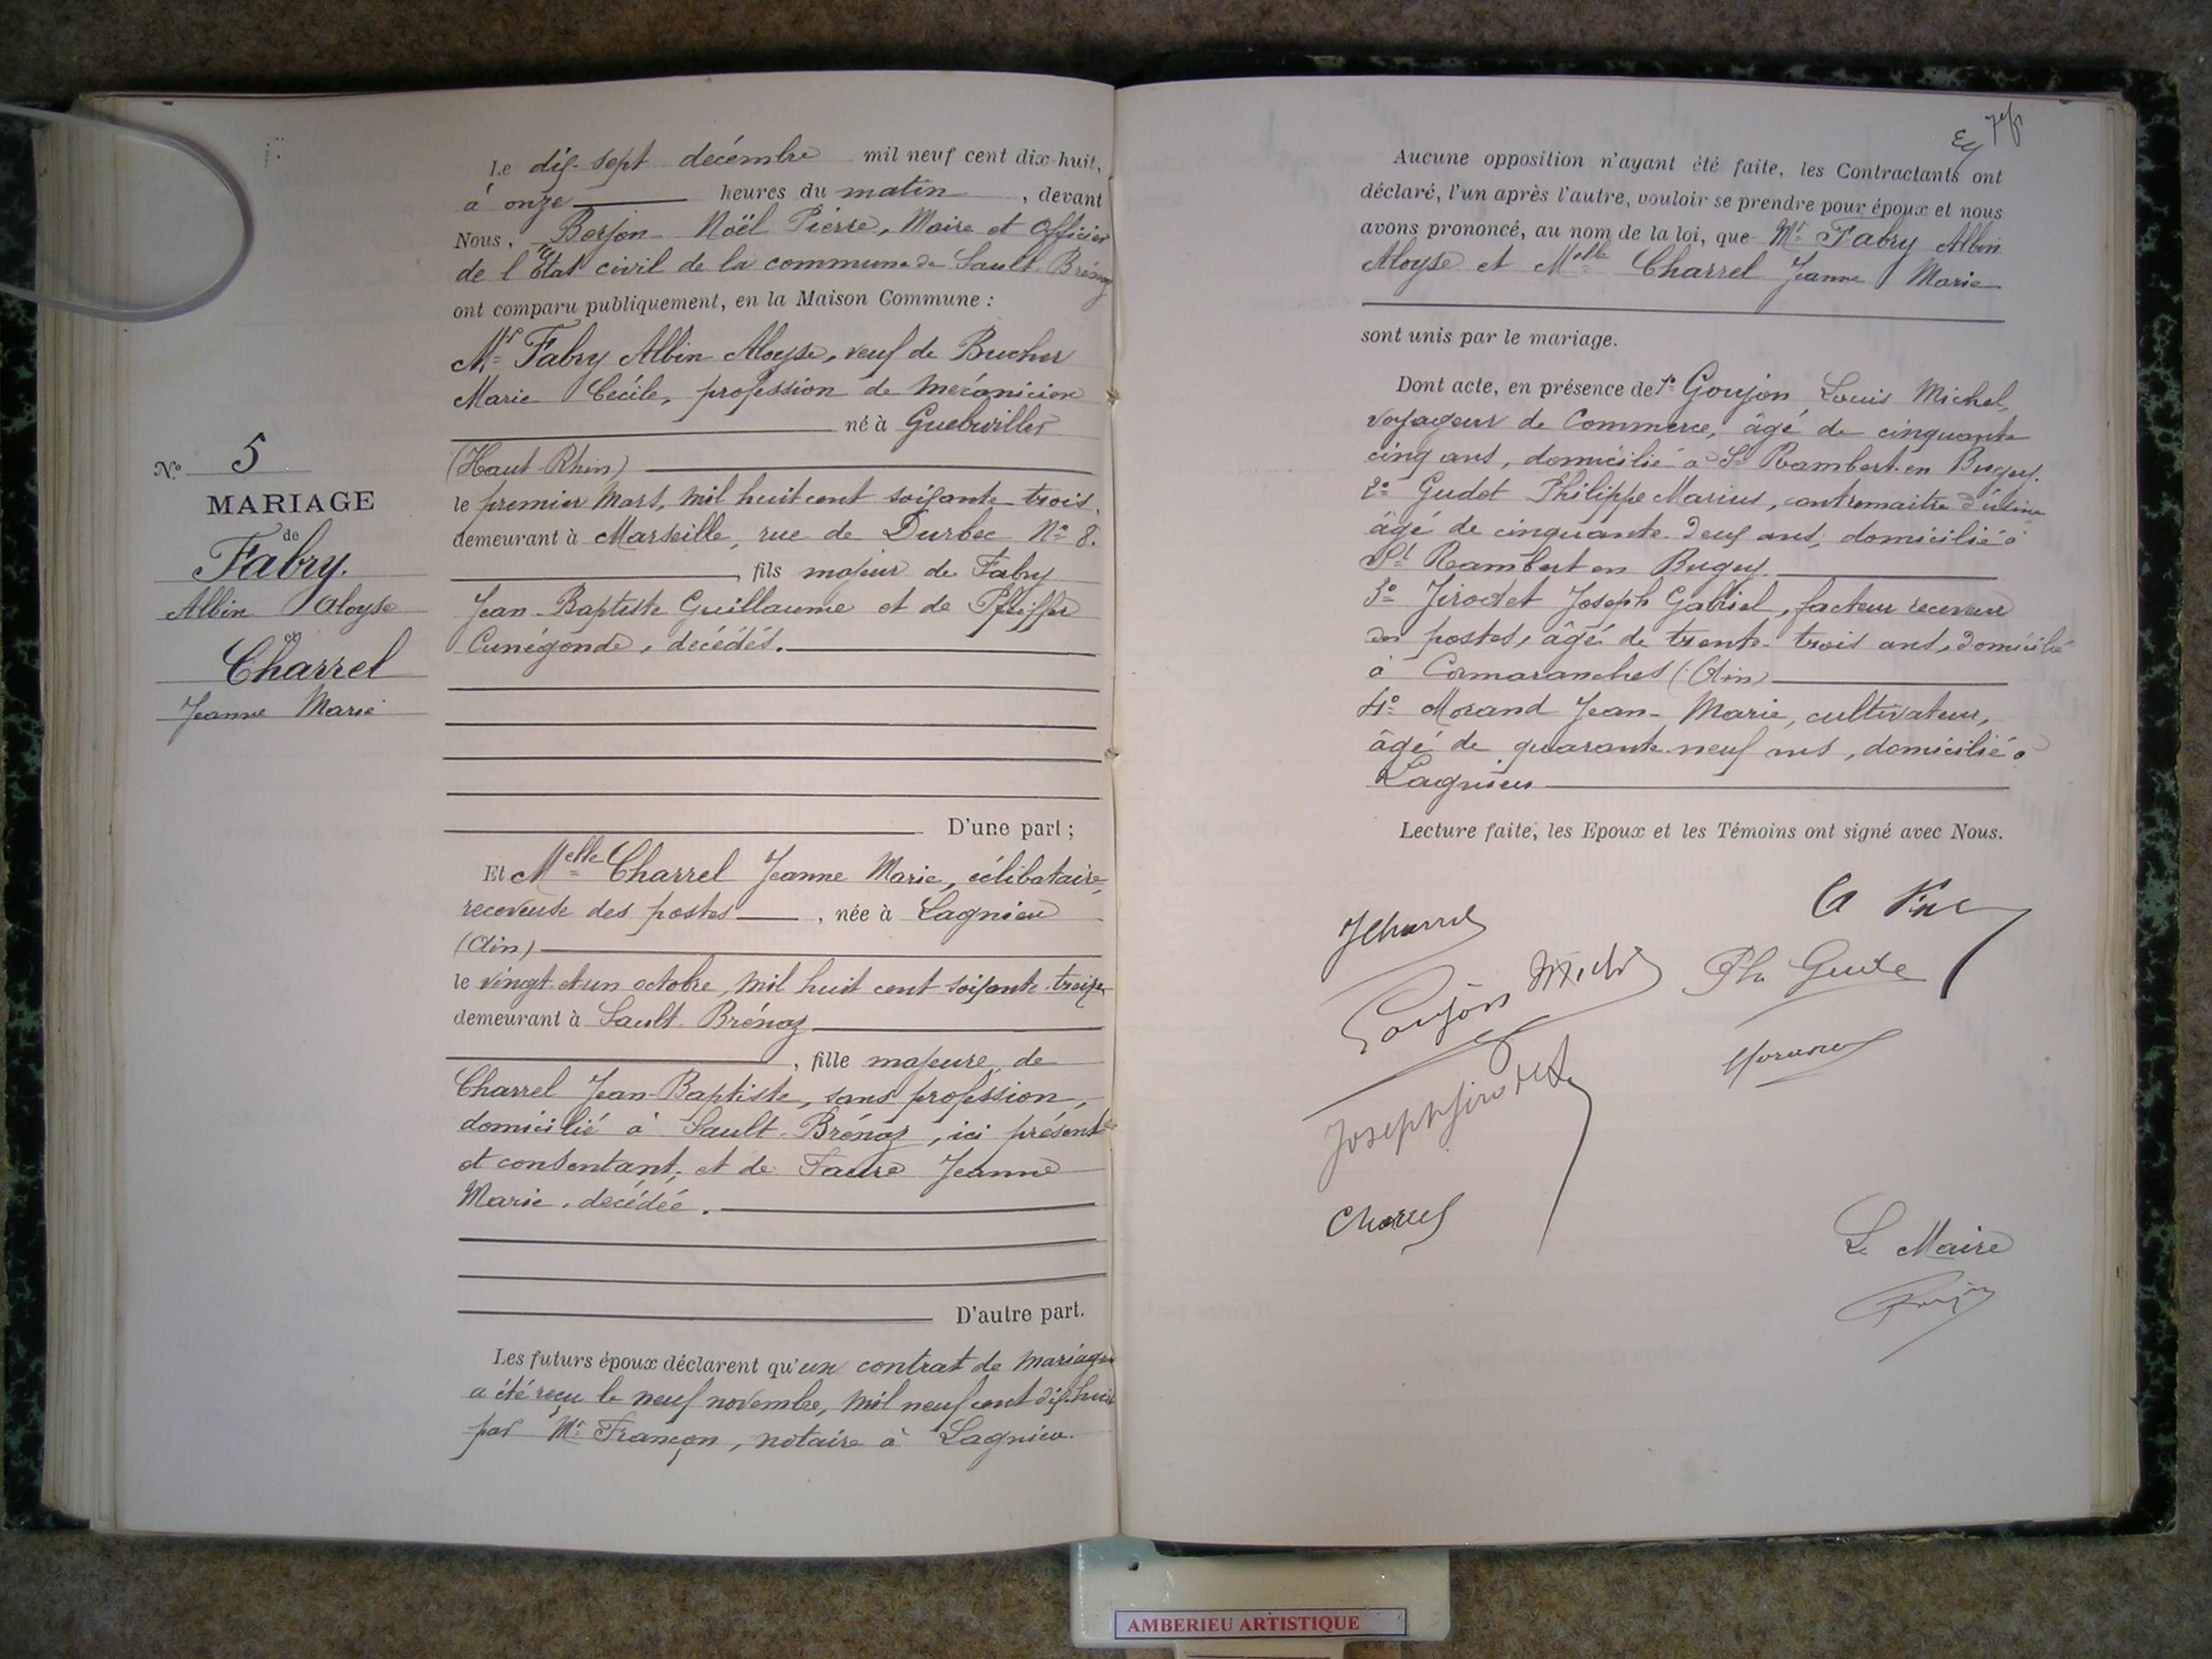 N.o 5
MARIAGE
de
Fabry.
Albin Aloyse
et
Charrel
Jeanne Marie
Le dix-sept décembre mil neuf cent dix-huit,
à onze heures du matin, devant
Nous, Borjon Noël Pierre, Maire et Officier
de l'Etat civil de la commune de Sault-Brénaz
ont comparu publiquement, en la Maison Commune :
Mr Fabry Albin Aloyse, veuf de Bucher
Marie Cécile, profession de mécanicien
né à Guebwiller
(Haut-Rhin)
le premier Mars, mil huit cent soixante-trois,
demeurant à Marseille, rue de Durbec No 8.
, fils majeur de Fabry
Jean-Baptiste Guillaume et de Pfeiffer
Cunégonde, décédés.
D'une part ;
Et Melle Charrel Jeanne Marie, célibataire,
receveuse des postes, née à Lagnieu
(Ain)
le vingt-et-un octobre, mil huit cent soixante-treize
demeurant à Sault-Brénaz
, fille majeure de
Charrel Jean-Baptiste, sans profession,
domicilié à Sault-Brénaz, ici présent
et consentant, et de Faure Jeanne
Marie, décédée.
D'autre part.
Les futurs époux déclarent qu'un contrat de mariage
a été reçu le neuf novembre, mil neuf cent dix-huit
par Mr Françon, notaire à Lagnieu.
Aucune opposition n'ayant été faite, les Contractants ont
déclaré, l'un après l'autre, vouloir se prendre pour époux et nous
avons prononcé, au nom de la loi, que Mr Fabry Albin
Aloyse et Melle Charrel Jeanne Marie
sont unis par le mariage.
Dont acte, en présence de 1o Goujon Louis Michel,
voyageur de Commerce, âgé de cinquante
cinq ans, domicilié à St Rambert-en Bugey.
2o Gudet Philippe Marius, contremaitre d'usine
âgé de cinquante-deux ans, domicilié à
St Rambert en Bugey
3o Jirodet Joseph Gabriel, facteur receveur
des postes, âgé de trente-trois ans, domicilié
à Cormaranches (Ain)
4o Morand Jean-Marie, cultivateur,
âgé de quarante-neuf ans, domicilié à
Lagnieu
Lecture faite, les Epoux et les Témoins ont signé avec Nous.
JCharrel
Goujon Michel
Ph Gudet
Morand
Joseph Jirodet
Charrel
Le Maire
AMBERIEU ARTISTIQUE